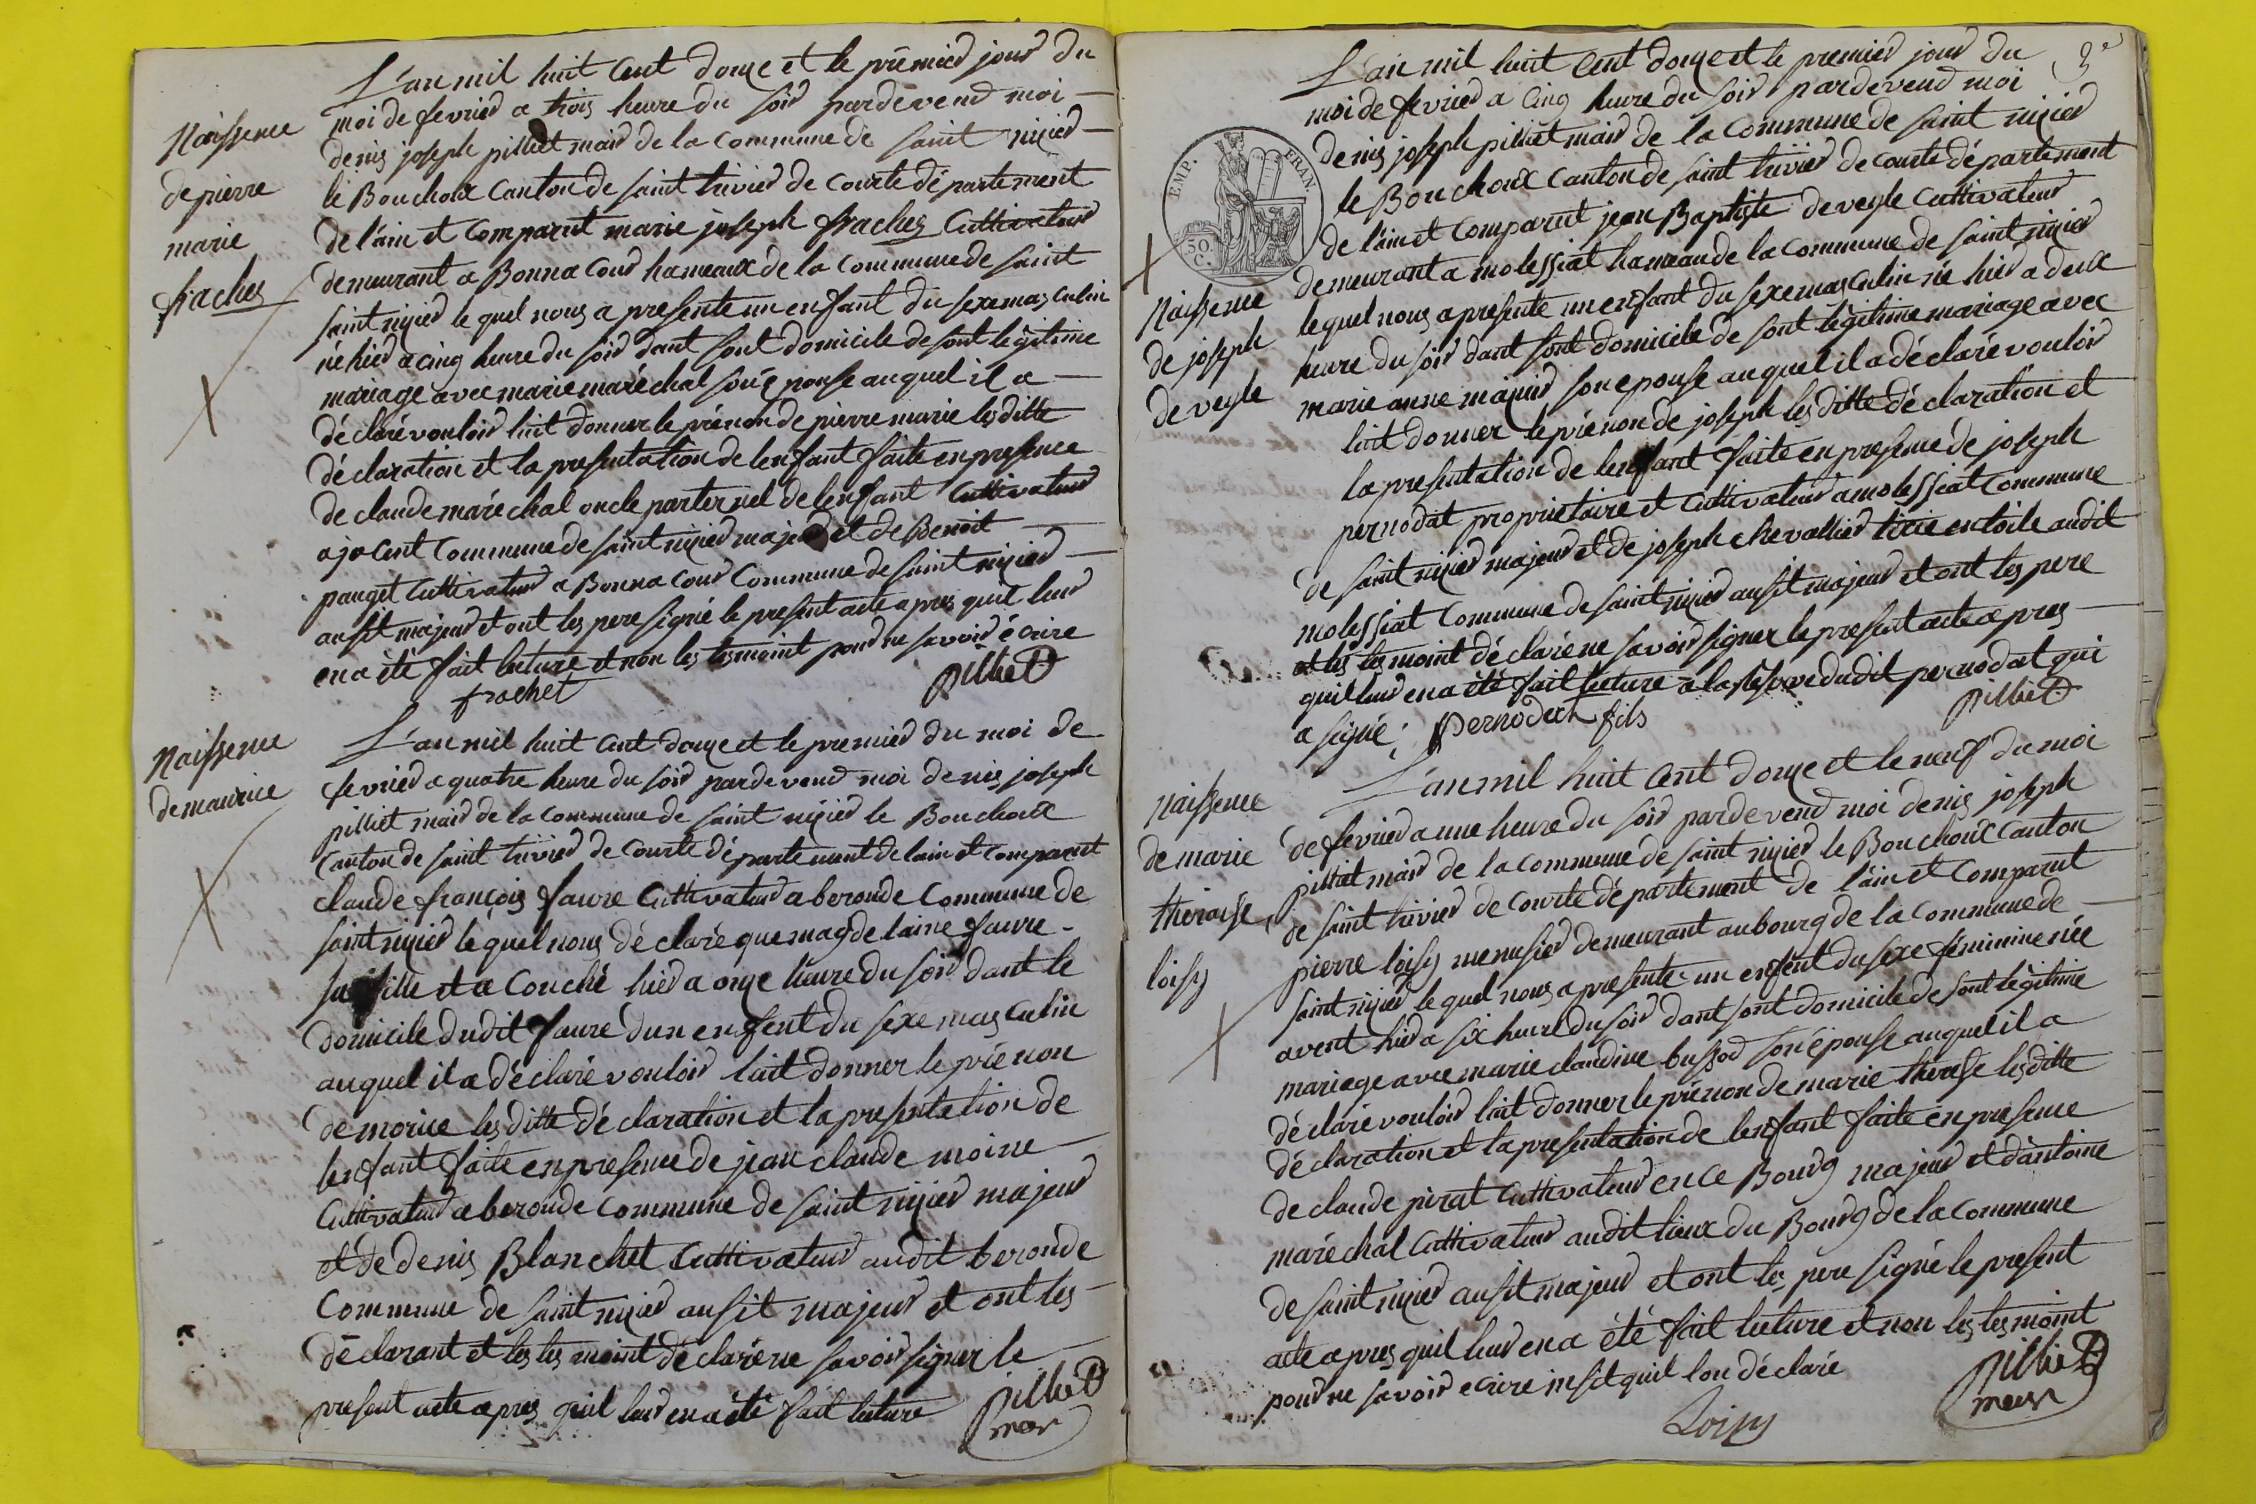 L'an mil huit cent douze et le prémier jour du
moi de fevrier a trois heure du soir pardevend moi
denis joseph pilliet mair de la commune de saint nizier
le Bouchoux canton de saint trivier de courte département
de l'ain et comparut marie joseph frachez cultivateur
demeurant a Bonna cour hameaux de la commune de saint
saint nizier le quel nous a presente un enfant du sexe masculin
né hier a cinq heure du soir dant sont domicile de sont légitime
mariage avec marie maréchal son épouse auquel il a
déclaré vouloir luit donner le prénon de pierre marie lesditte
déclaration et la presentation de lenfant faite en presence
de claude maréchal oncle parternel de lenfant cultivateur
a jocent commune de saint nizier majeur et de Benoit
pauget cultivateur a Bonna cour commune de saint nizier
ausit majeur et ont les pere signé le present acte apres quil leur
en a été fait lecture et non les tesmoint pour ne savoir écrire
frachet
pilliet
Naissence
de pierre
marie
frachez
L'an mil huit cent douze et le premier du moi de
fevrier a quatre heure du soir pardevend moi denis joseph
pilliet mair de la commune de saint nizier le Bouchoux
canton de saint trivier de courte département de lain et comparut
claude françois faure cultivateur a beronde commune de
saint nizier le quel nous déclaré que magdelaine faure
sa fille et a couché hier a onze heure du soir dant le
domicile dudit faure dun enfent du sexe masculin
auquel il a déclaré vouloir luit donner le prénon
de morice lesditte déclaration et la presentation de
lenfant faite en presence de jean claude moine
cultivateur a beronde commune de saint nizier majeur
et de denis Blanchet cultivateur audit beronde
commune de saint nizier ausit majeur et ont les
déclarant et les tesmoint déclaré ne savoir signer le
present acte apres quil leur en a été fait lecture
pilliet
mer
Naissence
de maurice
3e
L'an mil huit cent douze et le premier jour du
moi de fevrier a cinq heure du soir pardevend moi
denis joseph pilliet mair de la commune de saint nizier
le Bouchoux canton de saint trivier de courte département
de l'ain et comparut jean Baptiste deveyle cultivateur
demeurant a molessiat hameau de la commune de saint nizier
lequel nous a presente un enfant du sexe masculin né hier a deux
heure du soir dant sont domicile de sont légitime mariage avec
marie anne mazuir son epouse auquel il a déclaré vouloir
luit donner le prénon de joseph lesditte déclaration et
la presentation de lenfant faite en presence de joseph
pernodat proprietaire et cultivateur a molessiat commune
de saint nizier majeur et de joseph chevallier ticie en toile audit
molessiat commune de saint nizier ausit majeur et ont les pere
et les tesmoint déclaré ne savoir signer le present acte apres
quil leur en a été fait lecture a la reserve dudit pernodat qui
a signé; Pernodat fils
pilliet
EMP. FRAN.
50 C.
Naissence
de joseph
deveyle
L'an mil huit cent douze et le neuf du moi
de fevrier a une heure du soir pardevend moi denis joseph
pilliat mair de la commune de saint nizier le Bouchoux canton
de saint trivier de courte département de l'ain et comparut
pierre loisy menusier demeurant au bourg de la commune de
saint nizier le quel nous a presente un enfent du sexe féminine née
avent hier a six heure du soir dant sont domicile de sont légitime
mariage avec marie claudine bussod son épouse auquel il a
déclaré vouloir luit donner le prénon de marie therese lesditte
déclaration et la presentation de lenfant faite en presence
de claude pirat cultivateur en ce Bourg majeur et d'antoine
maréchal cultivateur audit lieux du Bourg de la commune
de saint nizier ausit majeur et ont les père signé le present
acte apres quil leur en a été fait lecture et non les tesmoint
pour ne savoir ecrire insit quil lon déclaré
Loisy
pilliet
mer
Naissence
de marie
theraise
loisy